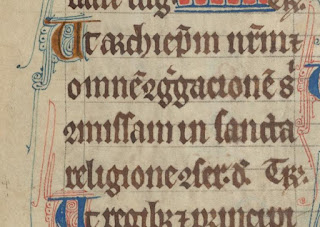 Ut archiep̄m nr̄m ⁊
omnē ꝯḡgacionē s̄
ꝯmissam in sancta
religione ꝯser. d̄. T͞e r̄.
Ut regib; ⁊ principi